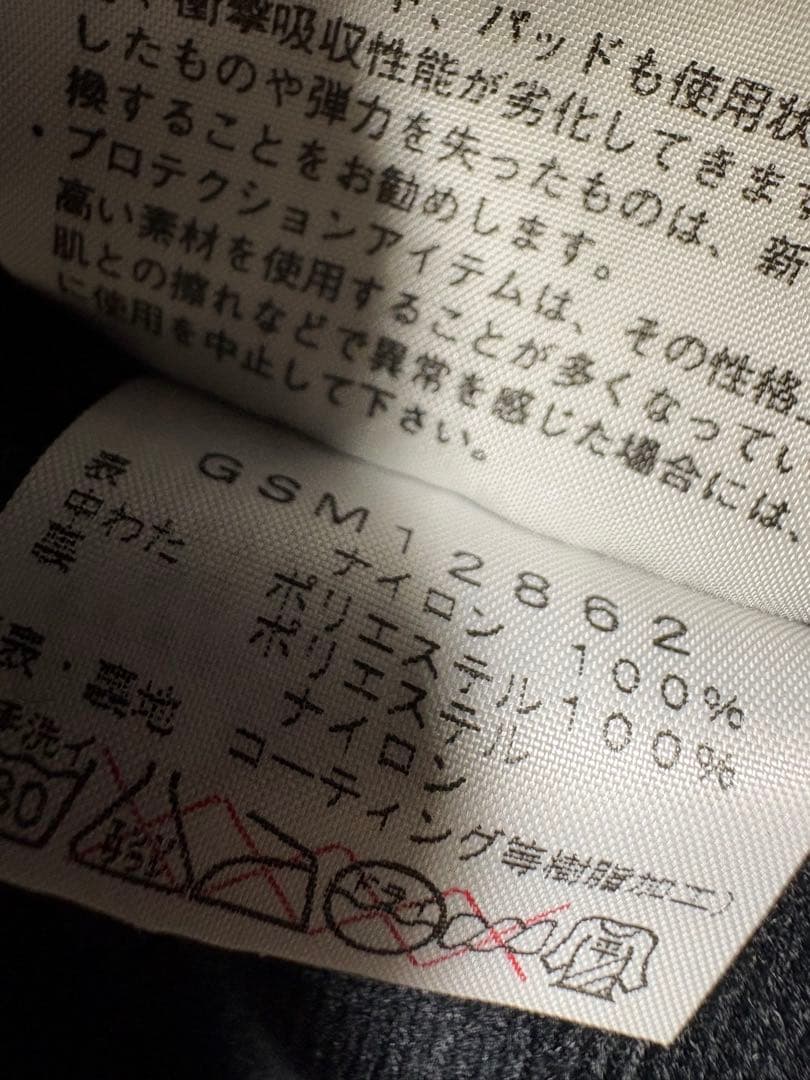 、パッドも使用状
衝撃吸収性能が劣化してきます
したものや弾力を失ったものは、新
換することをお勧めします。
・プロテクションアイテムは、その性格
高い素材を使用することが多くなってい
肌との擦れなどで異常を感じた場合には、
に使用を中止して下さい。
GSM12862
表 ナイロン 100%
中わた ポリエステル100%
裏 ポリエステル
ナイロン
表・裏地 コーティング等樹脂加工)
手洗イ
30
エンソサラシ
ドライ